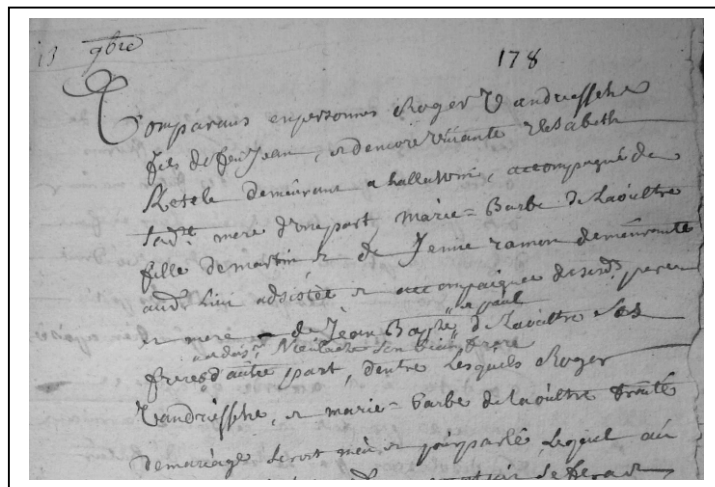 13 9bre
178
Comparans en personnes Roger Vandriessche
fils de feu Jean, et de encore vivante Elisabeth
Ketele demeurant a halluwin, accompagné de
sad.te mere d'une part, marie=Barbe de Laoultre
fille de martin, et de Jenne ramon demeurante
aud. lieu adsistée et accompagnée de sesd.s pere
et mere de Jean Bap.te, et paul de Laoultre ses
frere
freres d'autre part, d'entre lesquels Roger
Vandriessche, et marie=barbe de Laoultre traité
de mariage seroit meu et pourparlé, lequel au